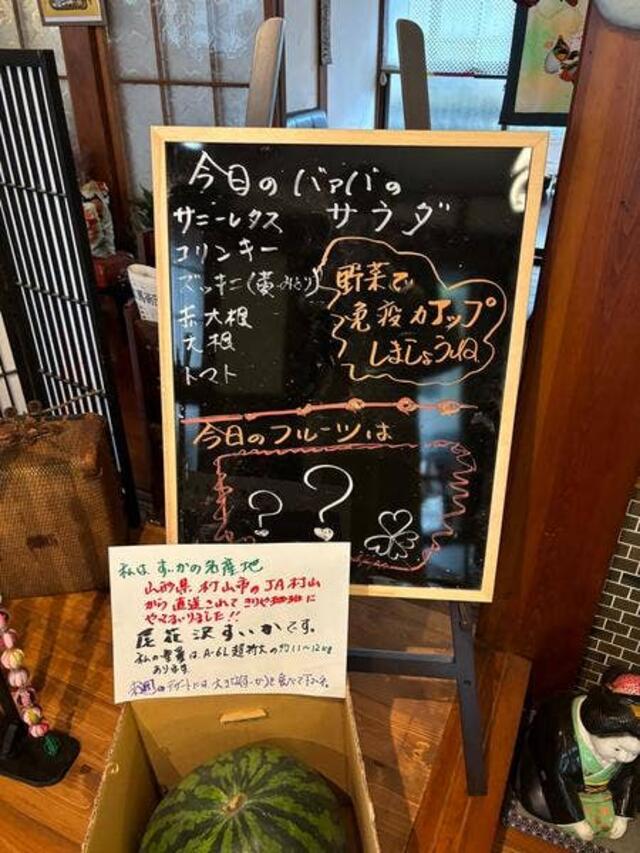 今日のバァバの
サラダ
サニーレタス
コリンキー
ズッキーニ(黄・みどり)
赤大根
大根
トマト
野菜で
免疫力アップ
しましょうね
今日のフルーツは
? ?
私は、すいかの名産地
山形県 村山市のJA村山
から直送されて きりや珈琲に
やってまいりました!!
尾花沢すいかです。
私の重量は、A-6L超特大の約11〜12kg
あります
デザートには、大きなすいかを食べて下さい。